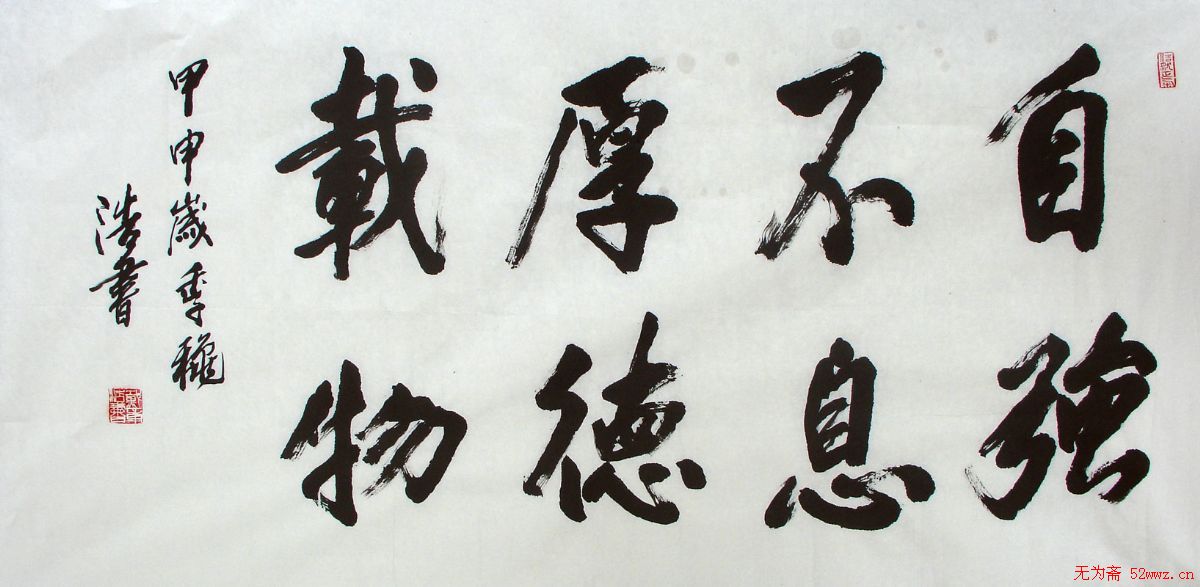 自強
不息
厚德
載物
甲申歲季龝
浩書
无为斋 52wwz.cn